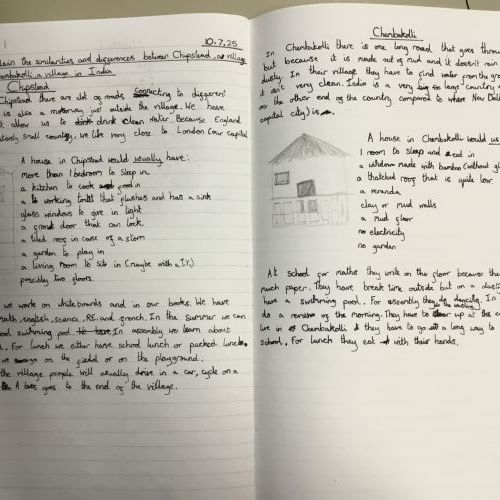 10.7.25
lain the similarities and differences between Chipstead, our village
Chembakolli, a village in India
Chipstead
Chipstead there are alot of roads connecting to different
is also a motorway just outside the village. We have
allow us to drink clean water. Because England
small country, we live very close to London (our capital
A house in Chipstead would usually have:
more than 1 bedroom to sleep in
a kitchen to cook food in
a working toilet that flushes and has a sink
glass windows to give in light
a front door that can lock
a tiled roof in case of a storm
a garden to play in
a living room to sib in (maybe with a T.V.)
possibly two floors.
we work on whiteboards and in our books. We have
math, english, science, R.E. and french. In the summer we can
swimming pool. In assembly we learn about
. For lunch we either have school lunch or packed lunch.
we on the field or on the playground.
the village people will usually drive in a car, cycle on a
A bus goes to the end of the village.
Chembakolli
In Chembakolli there is one long road that goes throu
but because it is made out of mud and it doesn't rain
dusty. In their village they have to find water from the gro
it isn't very clean. India is a very big large country
on the other end of the country compared to where New Delhi
capital city) is.
A house in Chembakolli would us
1 room to sleep and eat in
a window made with bamboo (without gl
a thatched roof that is quite low
a veranda
clay or mud walls
a mud floor
no electricity
no garden
At school for maths they write on the floor because the
much paper. They have break time outside but on a dust
have a swimming pool. For assembly they do In
do a of the morning. They have to up at the e
live in Chembakolli they have to go a long way to
school. For lunch they eat with their hands.